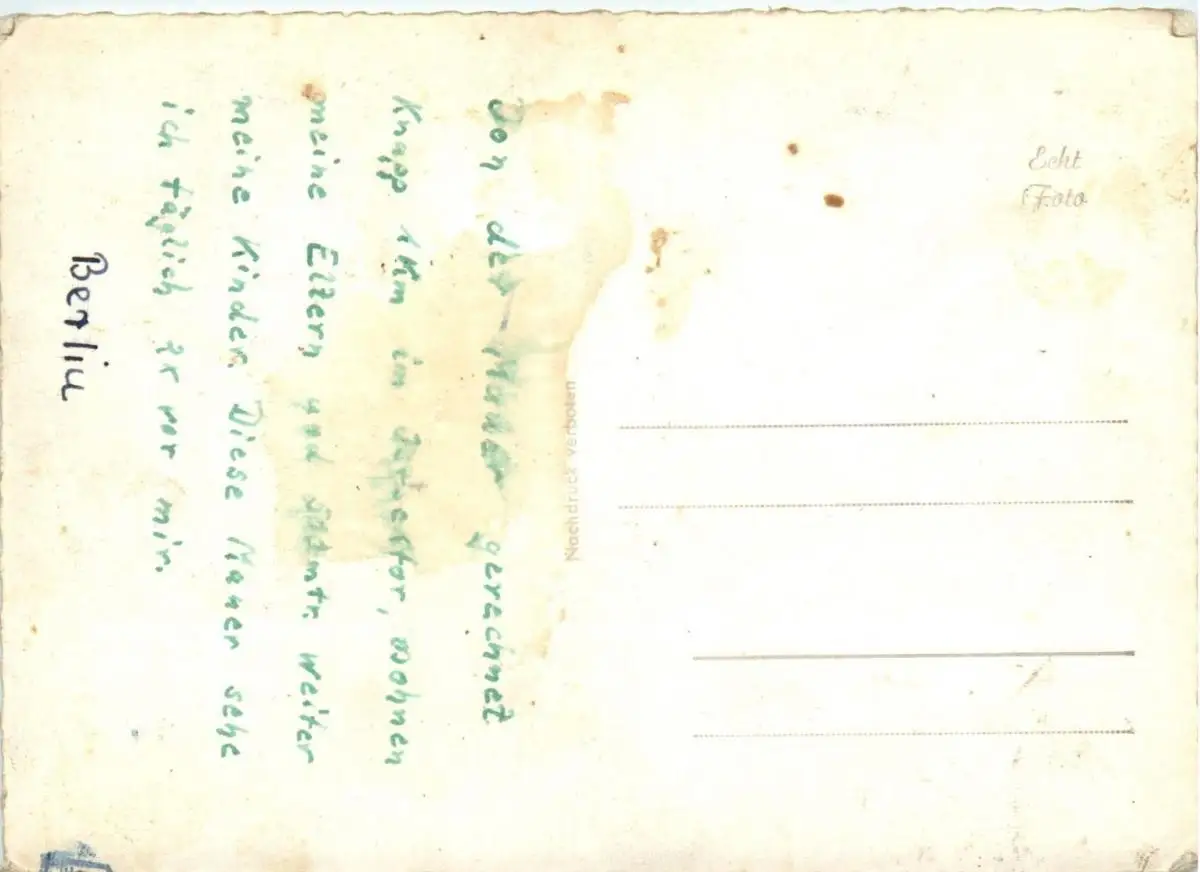 Von der Mauer gerechnet
Knapp 1 Km im wohnen
meine Eltern und weiter
meine Kinder. Diese Mauer sehe
ich täglich vor mir.
Berlin
Nachdruck verboten
Echt
Foto